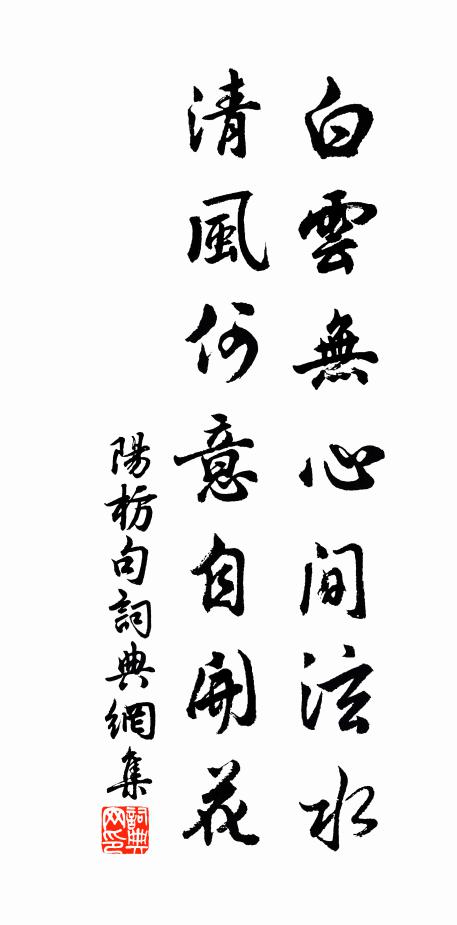 白雲無心間泫水
清風何意自開花
陽枋句詞典網集
詞典网印